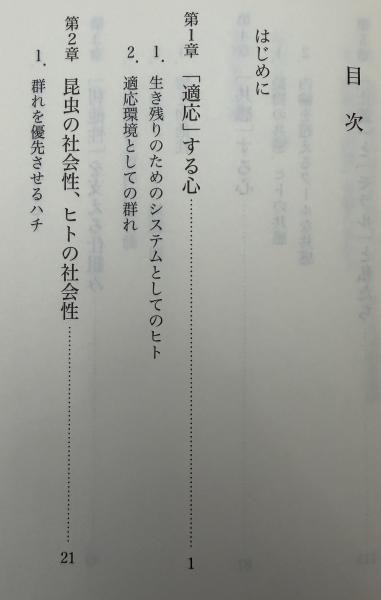 目次
はじめに
第1章 「適応」する心……………………………1
1. 生き残りのためのシステムとしてのヒト
2. 適応環境としての群れ
第2章 昆虫の社会性、ヒトの社会性……………………21
1. 群れを優先させるハチ